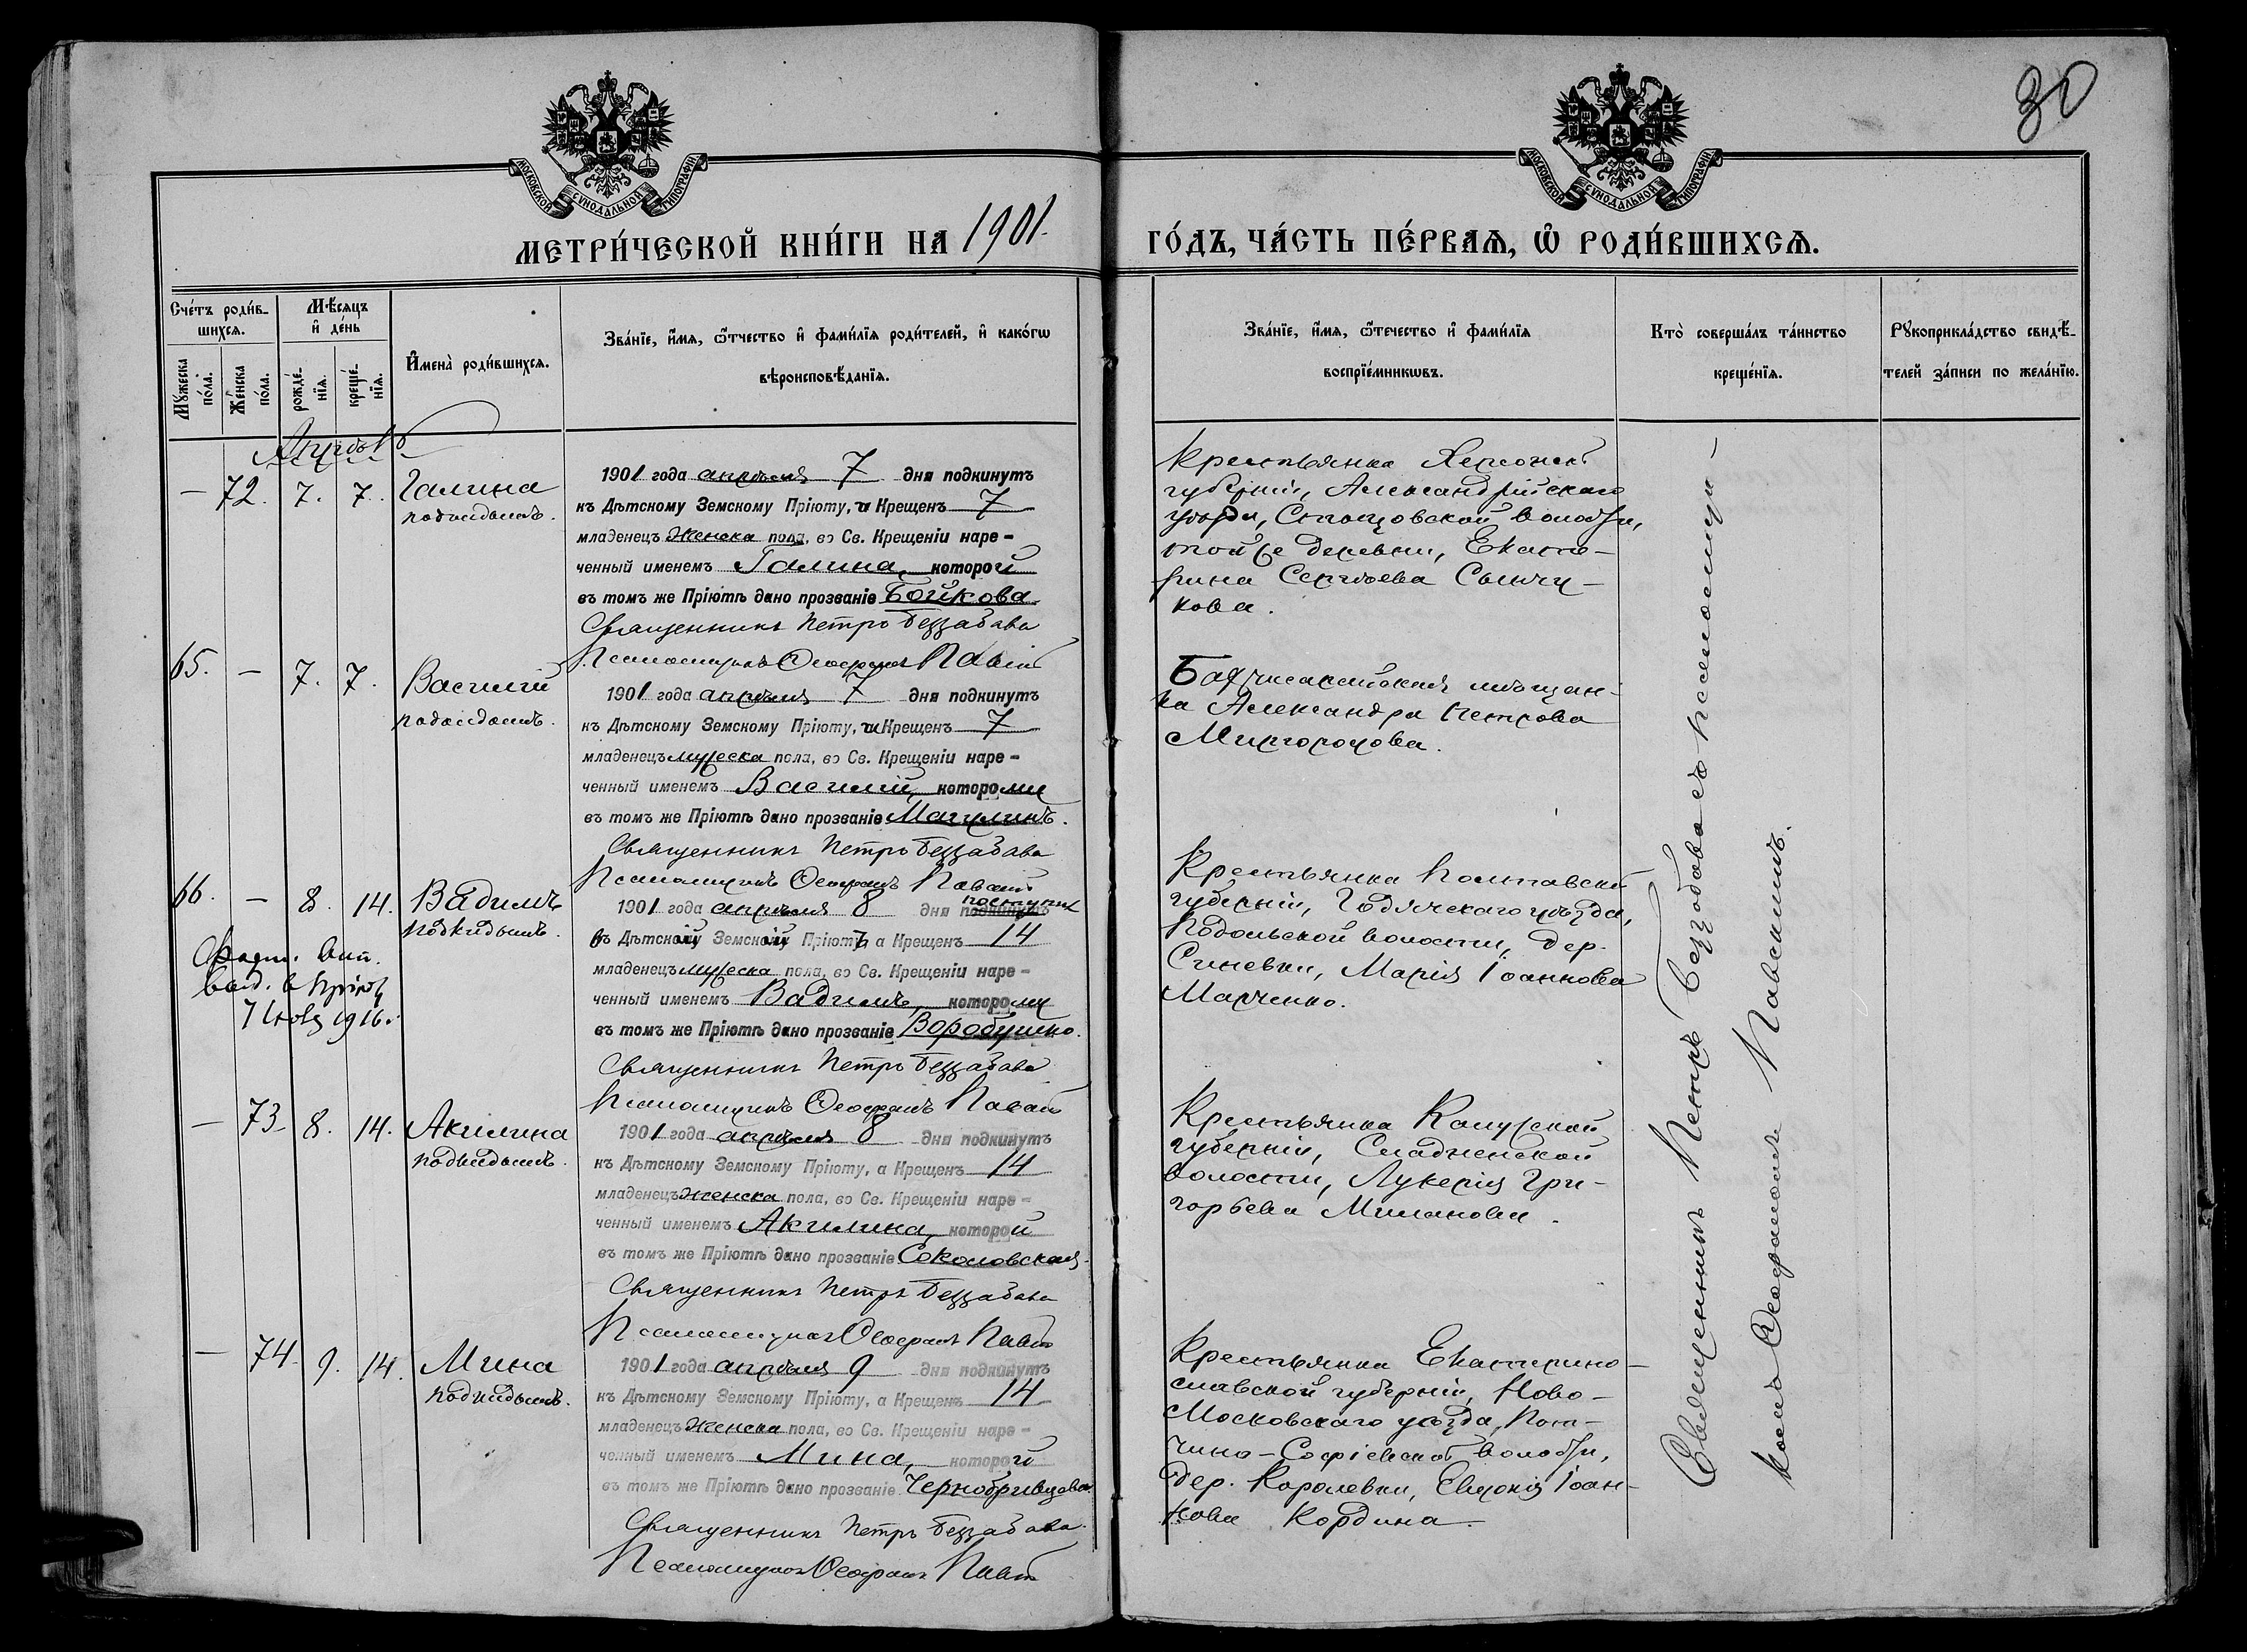 30
МОСКОВСКОЙ СѴНОДАЛЬНОЙ ТИПОГРАФІИ.
МОСКОВСКОЙ СѴНОДАЛЬНОЙ ТИПОГРАФІИ.
МЕТРИ́ЧЕСКОЙ КНИ́ГИ НА 1901.
ГО́ДЪ, ЧА́СТЬ ПЕ́РВАѦ, Ѽ РОДИ́ВШИХСѦ.
Сче́тъ роди́в-
шихсѧ.
Мꙋжеска по́ла.
Же́нска по́ла.
Мѣ́сѧцъ
и҆ де́нь
рожде́-
нїѧ.
креще́-
нїѧ.
И҆мена̀ роди́вшихсѧ.
Зва́нїе, и҆́мѧ, ѻ҆́тчество и҆ фами́лїѧ роди́телей, и҆ како́гѡ
вѣроисповѣ́данїѧ.
Зва́нїе, и҆́мѧ, ѻ҆те́чество и҆ фами́лїѧ
воспрїе́мникѡвъ.
Кто̀ соверша́лъ та́инство
креще́нїѧ.
Рꙋкоприкла́дство свидѣ́-
телей за́писи по жела́нїю.
Апрѣль
— 72. 7. 7. Галина
подкидышъ.
1901 года апрѣля 7 дня подкинутъ
къ Дѣтскому Земскому Пріюту, и Крещенъ 7
младенецъ женска пола, во Св. Крещеніи наре-
ченный именемъ Галина, которой
въ томъ же Пріютѣ дано прозваніе Бойкова
Священникъ Петръ Беззабава
Псаломщикъ Ѳеофанъ
Крестьянка Херсонск
губерніи, Александрійскаго
уѣзда, волости,
той же деревни, Екате-
рина Сергѣева
кова.
65. — 7. 7. Василій
подкидышъ.
1901 года апрѣля 7 дня подкинутъ
къ Дѣтскому Земскому Пріюту, и Крещенъ 7
младенецъ мужеска пола, во Св. Крещеніи наре-
ченный именемъ Василій, которому
въ томъ же Пріютѣ дано прозваніе
Священникъ Петръ Беззабава
Псаломщикъ Ѳеофанъ
Бахчисарайская мѣщан-
ка Александра Петрова
Миргородова.
66. — 8. 14. Вадимъ
подкидышъ.
выд. в
7 1916 г.
1901 года апрѣля 8 дня поступил
въ Дѣтскій Земскій Пріютъ, а Крещенъ 14
младенецъ мужеска пола, во Св. Крещеніи наре-
ченный именемъ Вадимъ, которому
въ томъ же Пріютѣ дано прозваніе Воробушко.
Священникъ Петръ Беззабава
Псаломщикъ Ѳеофанъ
Крестьянка Полтавской
губерніи, Гадячскаго уѣзда,
Подольской волости, дер.
Синевки, Марія Іоаннова
Марченко.
— 73 8. 14. Акилина
подкидышъ.
1901 года апрѣля 8 дня подкинутъ
къ Дѣтскому Земскому Пріюту, а Крещенъ 14
младенецъ женска пола, во Св. Крещеніи наре-
ченный именемъ Акилина, которой
въ томъ же Пріютѣ дано прозваніе Соколовская.
Священникъ Петръ Беззабава
Псаломщикъ Ѳеофанъ
Крестьянка Калужской
губерніи,
волости, Лукерія Гри-
горьева Миланова.
— 74 9. 14. Мина
подкидышъ.
1901 года апрѣля 9 дня подкинутъ
къ Дѣтскому Земскому Пріюту, а Крещенъ 14
младенецъ женска пола, во Св. Крещеніи наре-
ченный именемъ Мина, которой
въ томъ же Пріютѣ дано прозваніе Чернобривцова
Священникъ Петръ Беззабава.
Псаломщикъ Ѳеофанъ
Крестьянка Екатерино-
славской губерніи, Ново-
Московскаго уѣзда,
Софіевской волости,
дер. Королевки, Евдокія Іоан-
нова Кордина.
Священникъ Петръ Беззабава съ псаломщи-
комъ Ѳеофаномъ Павскимъ.